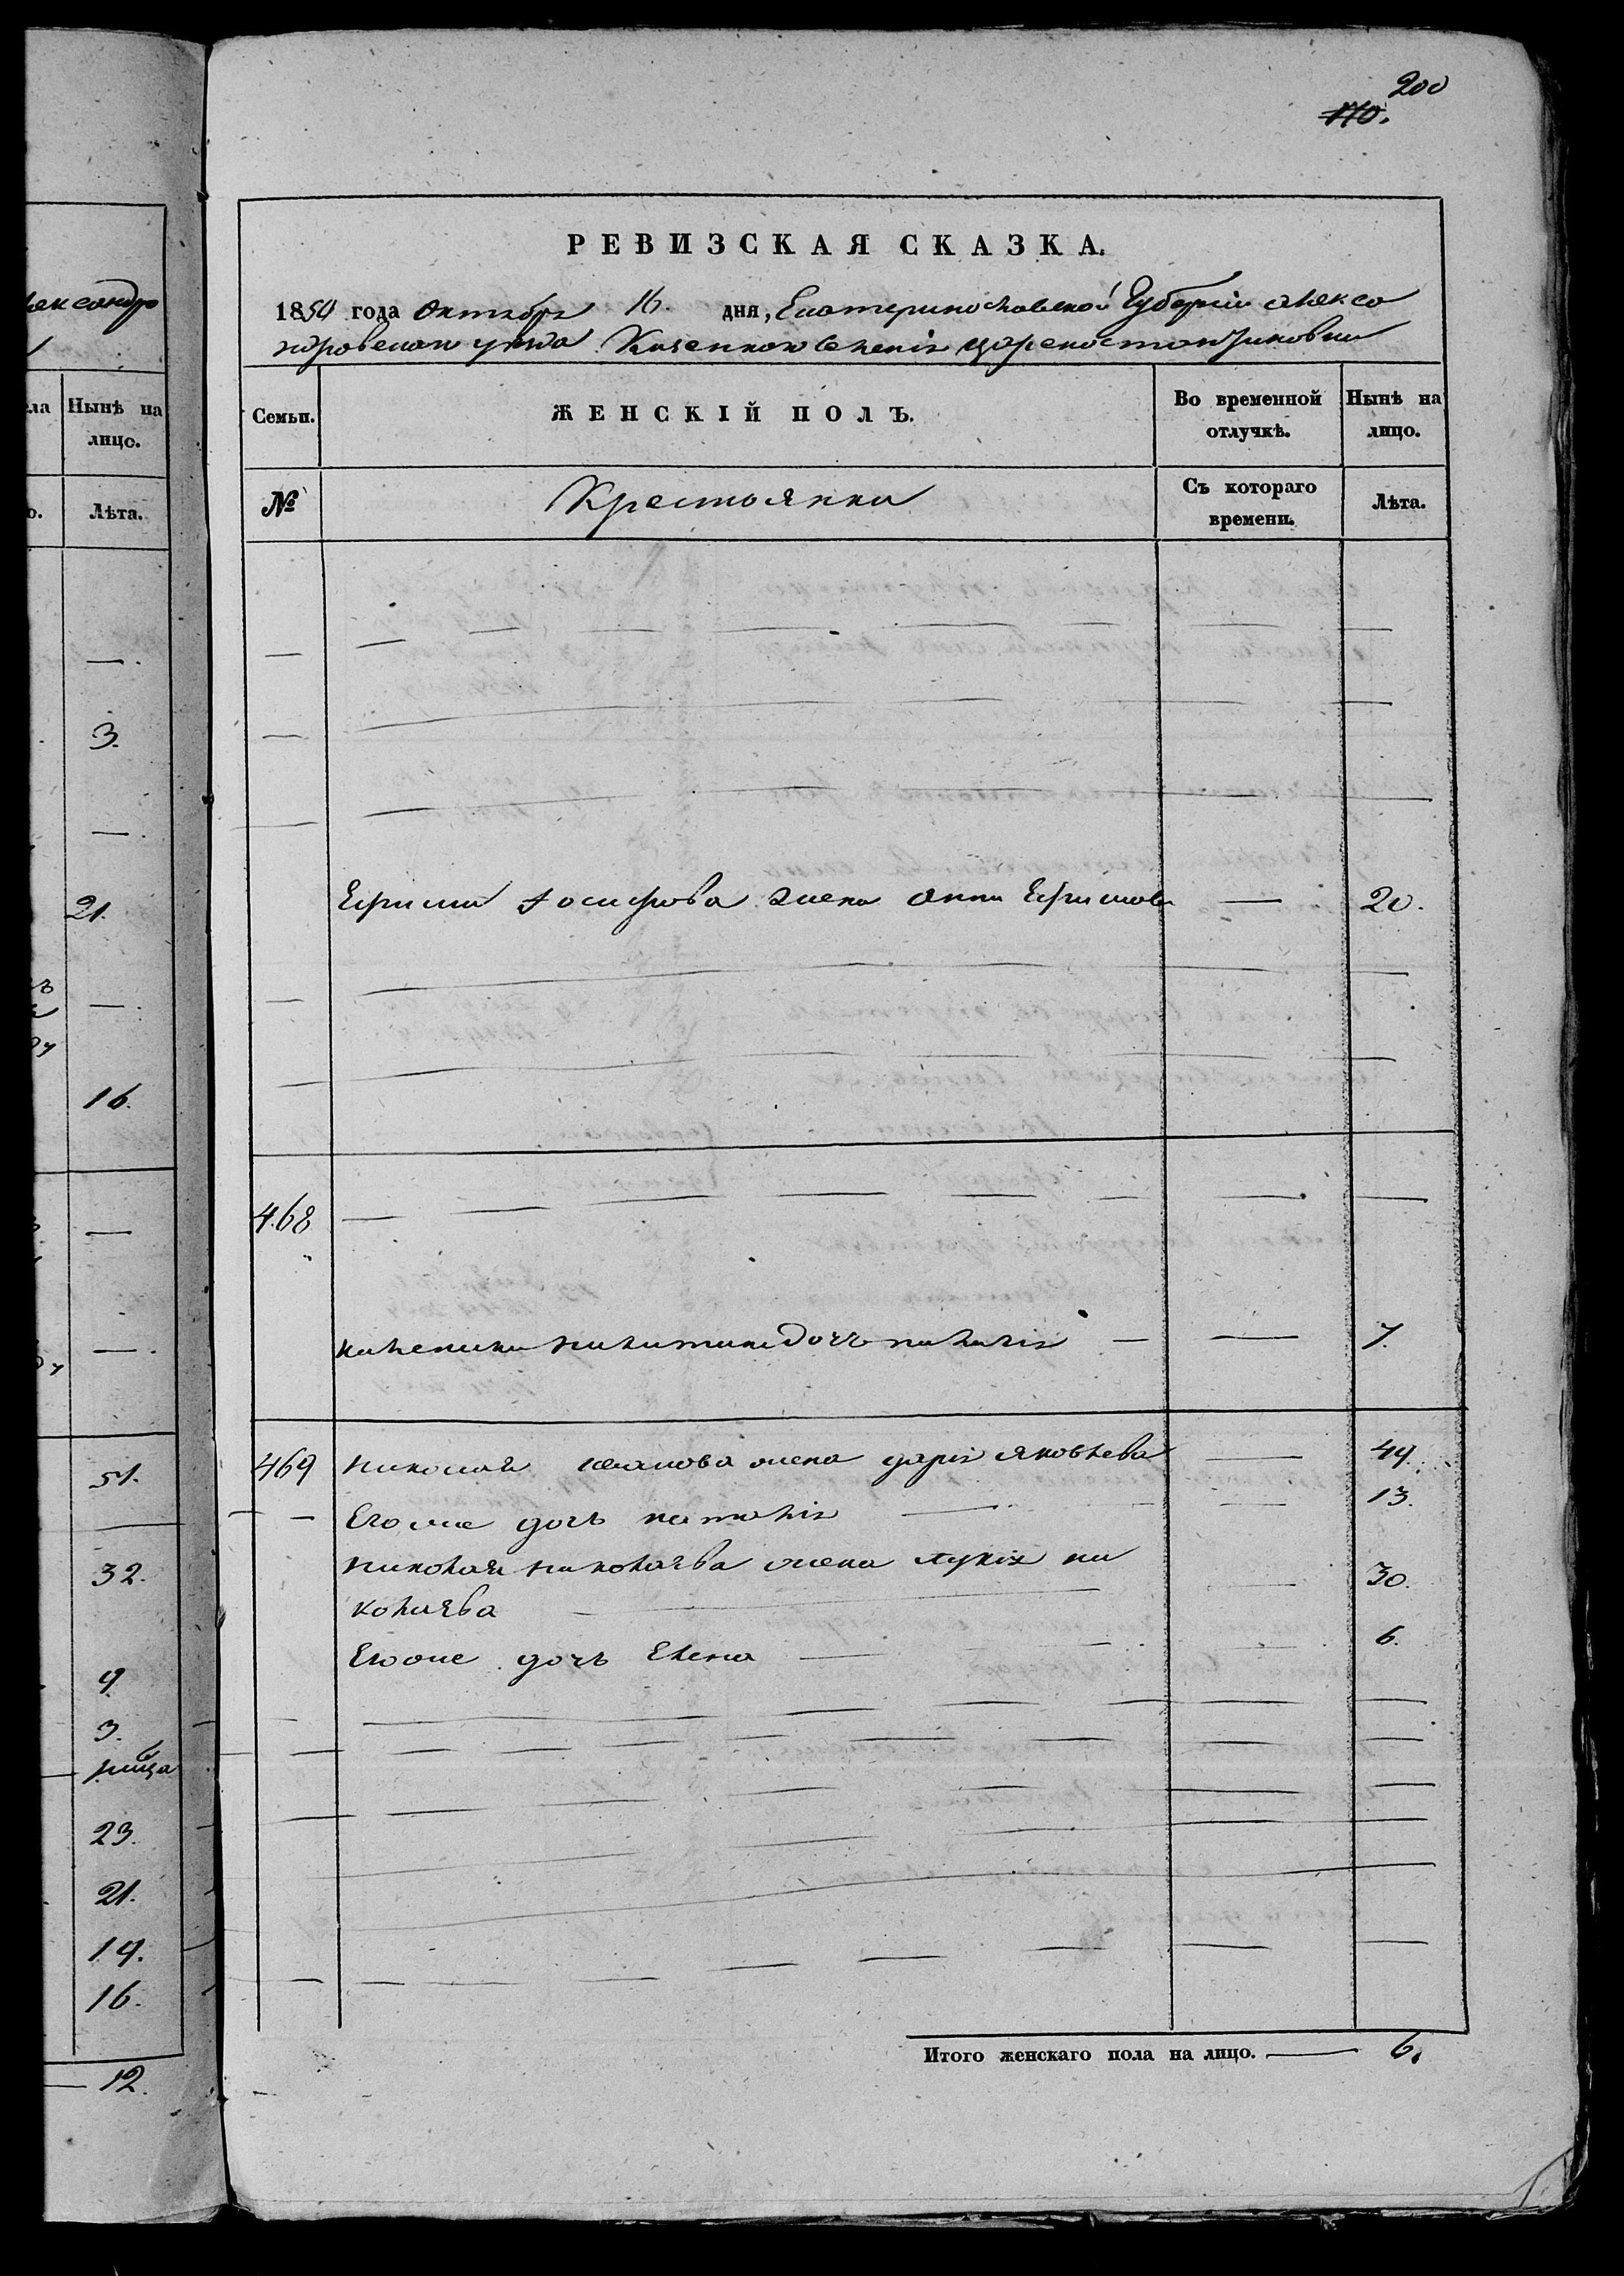 200
170.
РЕВИЗСКАЯ СКАЗКА.
1850 года Октября 16. дня, Екатеринославской Губернии Алекса
ндровскаго уезда Казенного Селения Цареконстантиновки
Семьи. ЖЕНСКІЙ ПОЛЪ. Во временной отлучкѣ. Нынѣ на лицо.
№ Крестьянки Съ котораго времени. Лѣта.
Ефима Иосифова жена Анна Ефимова — 20.
468
Никитина дочь Наталия — — 7.
469 Николая жена Дария Яковлева — 49.
Его же дочь Наталия — — 13.
Николая Николаева жена Лукия Ни
колаева — — 30.
Его же дочь Елена — — 6.
Итого женскаго пола на лицо. — 6.
лександр
Нынѣ на
лицо.
Лѣта.
—.
3.
—.
21.
—.
16.
—
—.
51.
32.
9
3.
23.
21.
14.
16.
— 12.